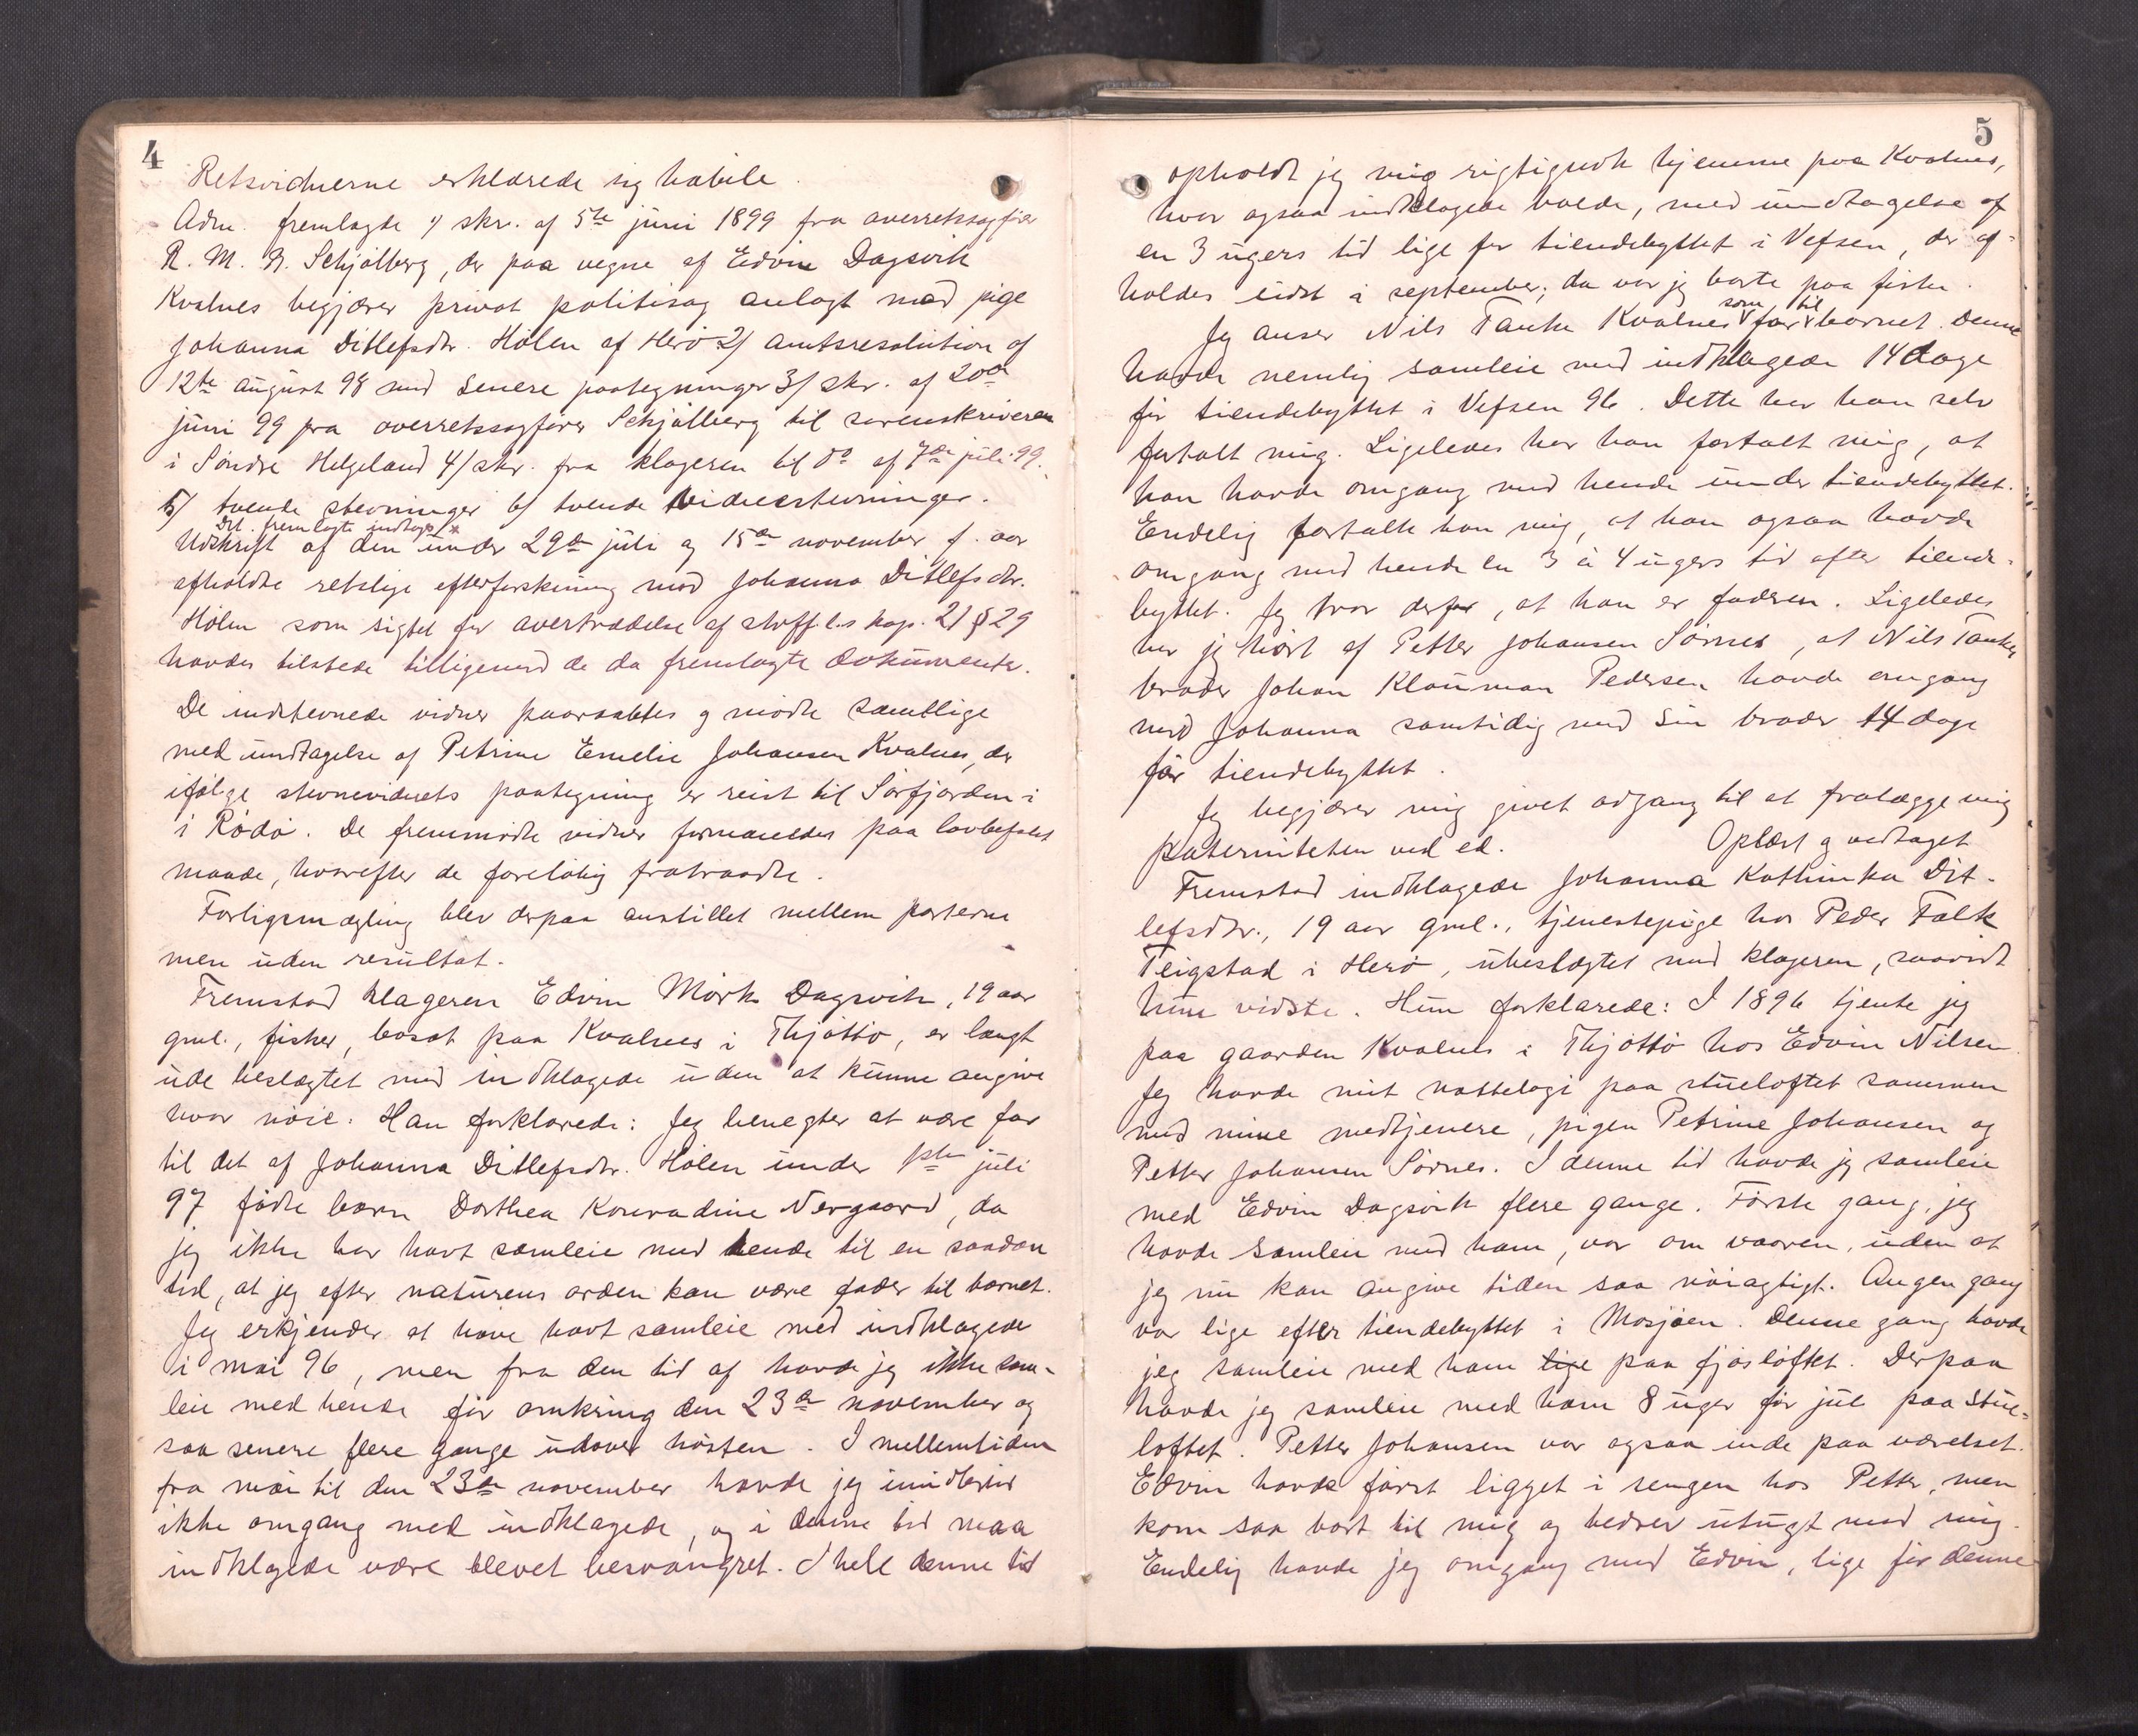 4
Retsvidnerne erklærede sig habile.
Adm. fremlagte 1/ skr. af 5te juni 1899 fra overretssagfører
R. M. B. Schjølberg, der paa vegne af Edvin Dagsvik
Kvalnes begjærer privat politisag anlagt mod pige
Johanna Ditlefsdtr. Hølen af Herø 2/ amtsresolution af
12te august 98 med senere paategninger 3/ skr. af 20de
juni 99 fra overretssagfører Schjølberg til sorenskriveren
i Søndre Helgeland 4/ skr. fra klageren til do af 7de juli 99.
5/ tvende stevninger 6/ tvende vidnestevninger.
Det fremlagte indtages *
Udskrift af den under 29de juli og 15de november f. aar
afholdte retslige efterforskning mod Johanna Ditlefsdtr.
Hølen som sigtet for overtrædelse af straff.l.s kap. 21 § 29
havdes tilstede tilligemed de da fremlagte dokumenter.
De indstevnede vidner paaraabtes og mødte samtlige
med undtagelse af Petrine Emelie Johansen Kvalnes, der
ifølge stevnevidnets paategning er reist til Sørfjorden i
i Rødø. De fremmødte vidner formanedes paa lovbefalet
maade, hvorefter de foreløbig fratraadte.
Forligsmægling blev derpaa anstillet mellem parterne
men uden resultat.
Fremstod klageren Edvin Mørk Dagsvik, 19 aar
gml., fisker, bosat paa Kvalnes i Thjøttø, er langt
ude beslægtet med indklagede uden at kunne angive
hvor nøie. Han forklarede: Jeg benegter at være far
til det af Johanna Ditlefsdtr. Hølen under 1ste juli
97 fødte barn Dorthea Konradine Nergaard, da
jeg ikke har havt samleie med hende til en saadan
tid, at jeg efter naturens orden kan være fader til barnet.
Jeg erkjender at have havt samleie med indklagede
i mai 96, men fra den tid af havde jeg ikke sam-
leie med hende før omkring den 23de november og
saa senere flere gange udover høsten. I mellemtiden
fra mai til den 23de november havde jeg imidlertid
ikke omgang med indklagede, og i denne tid maa
indklagede være blevet besvangret. I hele denne tid
5
opholdt jeg mig rigtignok hjemme paa Kvalnes,
hvor ogsaa indklagede var, med undtagelse af
en 3 ugers tid lige før tiendebyttet i Vefsen, der af-
holdes sidst i september; da var jeg borte paa fiske.
Jeg anser Nils Tanke Kvalnes som far til barnet. Denne
havde nemlig samleie med indklagede 14 dage
før tiendebyttet i Vefsen 96. Dette har han selv
fortalt mig. Ligeledes har han fortalt mig, at
han havde omgang med hende under tiendebyttet.
Endelig fortalte han mig, at han ogsaa havde
omgang med hende en 3 à 4 ugers tid efter tiende-
byttet. Jeg tror derfor, at han er faderen. Ligeledes
har jeg hørt af Petter Johansen Sørnes, at Nils Tankes
broder Johan Klauman Pedersen havde omgang
med Johanna samtidig med sin broder 14 dage
før tiendebyttet.
Jeg begjærer mig givet adgang til at fralægge mig
paterniteten ved ed. Oplæst og vedtaget
Fremstod indklagede Johanna Kathinka Dit-
lefsdtr., 19 aar gml., tjenestepige hos Peder Falk
Teigstad i Herø, ubeslægtet med klageren, saavidt
hun vidste. Hun forklarede: I 1896 tjente jeg
paa gaarden Kvalnes i Thjøttø hos Edvin Nilsen.
Jeg havde mit nattelogi paa stueloftet sammen
med mine medtjenere, pigen Petrine Johansen og
Petter Johansen Sørnes. I denne tid havde jeg samleie
med Edvin Dagsvik flere gange. Første gang, jeg
havde samleie med ham, var om vaaren, uden at
jeg nu kan angive tiden saa nøiagtigt. Angen gang
var lige efter tiendebyttet i Mosjøen. Denne gang havde
jeg samleie med ham lige paa fjøsloftet. Derpaa
havde jeg samleie med ham 8 uger før jul paa stue-
loftet. Petter Johansen var ogsaa inde paa værelset.
Edvin havde først ligget i sengen hos Petter, men
kom saa bort til mig og bedrev utugt med mig.
Endelig havde jeg omgang med Edvin, lige før denne